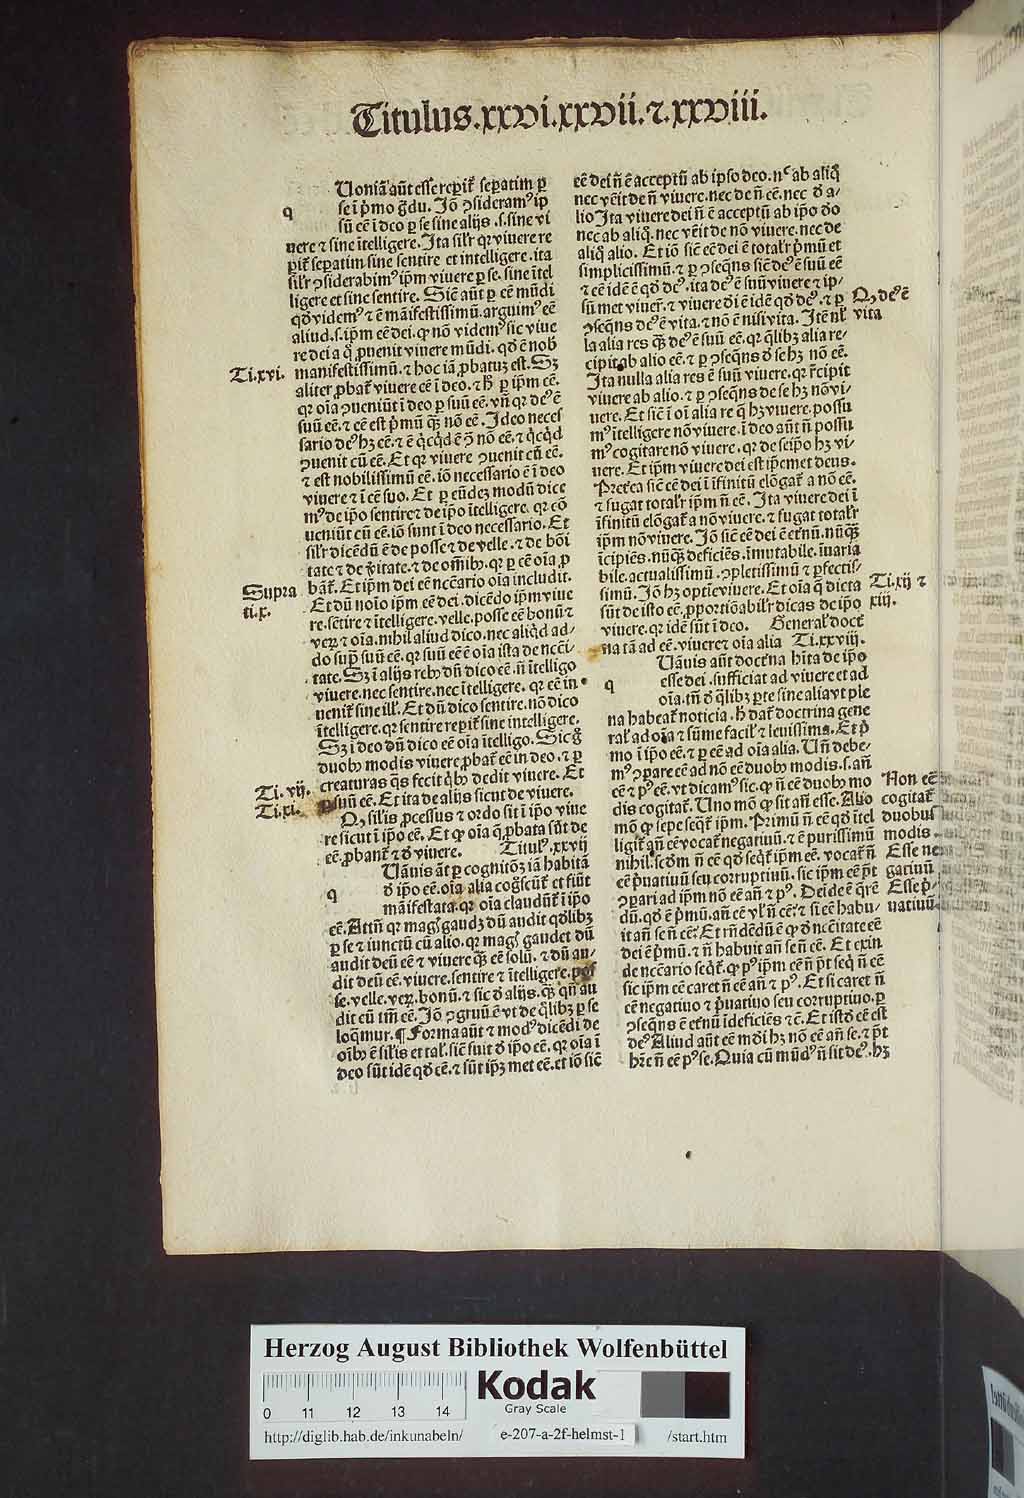 Titulus.xxvi.xxvii.⁊.xxviii.
Uoniã aũt esse reꝑit᷑ seꝑatim ꝑ
q
se ĩ pͥmo gͣdu. Jõ ꝯsideramꝰ ip
sũ eē ĩ deo ꝑ se sine alijs .s. sine vi
uere ⁊ sine ĩtelligere. Ita silr̃ qꝛ viuere re
ꝑit᷑ seꝑatim sine sentire et intelligere. ita
silr̃ ꝯsiderabimꝰ ip̃m viuere ꝑ se. sine ĩtel
ligere et sine sentire. Sic̃ aũt ꝑ eē mũdi
qd̃ videmꝰ ⁊ ē mãifestissimũ. arguimꝰ eē
aliud .s. ip̃m eē dei. qd̃ nõ videmꝰ sic viue
re dei a q̃ ꝓuenit viuere mũdi. qd̃ ē nob̃
Ti.xvi.
manifestissimũ. ⁊ hoc iã ꝓbatuꝫ est. Sꝫ
aliter ꝓbat᷑ viuere eē ĩ deo. ⁊ h̃ ꝑ ip̃m eē.
qꝛ oĩa ꝯueniũt ĩ deo ꝑ suũ eē. vñ qꝛ deꝰ ē
suũ eē. ⁊ eē est pͥmũ qͣꝫ nõ eē. Ideo neces
sario deꝰ hꝫ eē. ⁊ ē qͥcqͥd ē ꝯ̃ nõ eē. ⁊ qͥcqͥd
ꝯuenit cũ eē. Et qꝛ viuere ꝯuenit cũ eē.
⁊ est nobilissimũ eē. iõ necessario ē ĩ deo
viuere ⁊ ĩ eē suo. Et ꝑ eũdeꝫ modũ dice
mꝰ de ip̃o sentire ⁊ de ip̃o ĩtelligere. qꝛ cõ
ueniũt cũ eē. iõ sunt ĩ deo necessario. Et
silr̃ dicẽdũ ē de posse ⁊ de velle. ⁊ de boni
tate ⁊ de v̾itate. ⁊ de om̃ibꝰ. qꝛ ꝑ eē oĩa ꝓ
Supra
ti.x.
bãt᷑. Et ip̃m dei eē nc̃ẽario oĩa includit.
Et dũ noĩo ip̃m eē dei. dicẽdo ip̃m viue
re. sẽtire ⁊ ĩtelligere. velle. posse eē bonũ ⁊
veꝝ ⁊ oĩa. nihil aliud dico. nec aliqͥd ad-
do supͣ suũ eē. qꝛ suũ eē ē oĩa ista de nc̃ci-
tate. Sꝫ ĩ alijs rebꝰ dũ dico eē. ñ ĩtelligo
viuere. nec sentire. nec ĩtelligere. qꝛ eē in-
uenit᷑ sine ill̃. Et dũ dico sentire. nõ dico
ĩtelligere. qꝛ sentire reꝑit᷑ sine intelligere.
Sꝫ ĩ deo dũ dico eē oĩa ĩtelligo. Sic g̃
duobꝰ modis viuere ꝓbat᷑ eē in deo. ⁊ ꝑ
Ti.vij.
creaturas qͣs fecit qͥbꝰ dedit viuere. Et
Ti.xi.
ꝑ suũ eē. Et ita de alijs sicut de viuere.
Qꝫ silis ꝓcessus ⁊ ordo sit ĩ ip̃o viue
re sicut ĩ ip̃o eē. Et qꝫ oĩa q̃ ꝓbata sũt de
eē. ꝓbant᷑ ⁊ d̾ viuere. Titulꝰ.xxvij
Uãuis aũt ꝑ cognitõꝫ iã habitã
d̾ ip̃o eē. oĩa alia cogͦscũt᷑ et fiũt
q
mãifestata. qꝛ oĩa claudũt᷑ ĩ ip̃o
eē. Attñ qꝛ magꝭ gaudꝫ dũ audit qd̾libꝫ
ꝑ se ⁊ iunctũ cũ alio. qꝛ magꝭ gaudet dũ
audit deũ eē ⁊ viuere qͣꝫ eē solũ. ⁊ dũ au-
dit deũ eē. viuere. sentire ⁊ ĩtelligere. pos
se. velle. veꝝ. bonũ. ⁊ sic d̾ alijs. qͣꝫ qñ au
dit eũ tm̃ eē. Jõ ꝯgruũ ē vt de qͦlibꝫ ꝑ se
loqͣmur. ¶ Forma aũt ⁊ modꝰ dicẽdi de
oĩbꝰ ē silis et tal̃. sic̃ fuit d̾ ip̃o eē. qꝛ oĩa ĩ
deo sũt idẽ qd̾ eē. ⁊ sũt ip̃ꝫ met eē. et iõ sic̃
eē dei ñ ē acceptũ ab ipso deo. nͨ ab aliqͦ
nec vẽit de ñ viuere. nec de ñ eē. nec d̾ a-
lio Ita viuere dei ñ ē acceptũ ab ip̃o d̾o
nec ab aliqͦ. nec vẽit de nõ viuere. nec de
aliqͦ alio. Et iõ sic̃ eē dei ē totalr̃ pͥmũ et
simplicissimũ. ⁊ ꝑ ꝯseqñs sic̃ deꝰ ē suũ eē
⁊ eē idẽ ē qd̾ deꝰ. ita deꝰ ē suũ viuere ⁊ ip-
sũ met viuer̃. ⁊ viuere d̾i ē idẽ qd̾ deꝰ. ⁊ ꝑ
Qꝫ deꝰ ē
vita
ꝯseqñs deꝰ ē vita. ⁊ nõ ē nisi vita. Itẽ nl̃
la alia res qͣꝫ deꝰ ē suũ eē. qꝛ qͦlibꝫ alia re-
cipit ab alio eē. ⁊ ꝑ ꝯseqñs d̾ se hꝫ nõ eē.
Ita nulla alia res ē suũ viuere. qꝛ r̃cipit
viuere ab alio. ⁊ ꝑ ꝯseqñs de se hꝫ nõ vi-
uere. Et sic̃ ĩ oĩ alia re q̃ hꝫ viuere. possu
mꝰ ĩtelligere nõ viuere. ĩ deo aũt ñ possu
mꝰ cogitare nõ viuere. qꝛ de seip̃o hꝫ vi-
uere. Et ip̃m viuere dei est ip̃emet deus.
Preterea sic̃ eē dei ĩ ĩfinitũ elõgat᷑ a nõ eē.
⁊ fugat totalr̃ ip̃m ñ eē. Ita viuere dei ĩ
ĩfinitũ elõgat᷑ a nõ viuere. ⁊ fugat totalr̃
ip̃m nõ viuere. Jõ sic̃ eē dei ē et̃nũ. nũqͣꝫ
ĩcipiẽs. nũqͣꝫ deficiẽs. ĩmutabile. ĩuaria
bile. actualissimũ. ꝯpletissimũ ⁊ ꝑfectis-
simũ. Jõ hꝫ optie viuere. Et oĩa q̃ dicta
Ti.xij ⁊
xiij.
sũt de isto eē. ꝓportiõabilr̃ dicas de ip̃o
viuere. qꝛ idẽ sũt ĩ deo. General̃ doct
na tã ad eē. viuere ⁊ oĩa alia Ti.xxviij.
Uãuis aũt doctͥna hĩta de ip̃o
q
esse dei. sufficiat ad viuere et ad
oĩa. tñ d̾ qͦlibꝫ ꝑte sine alia vt ple
na habeat᷑ noticia. h̃ dat᷑ doctrina gene
ral̃ ad oĩa ⁊ sũme facil̃ ⁊ leuissima. Et pͥ
mo ĩ ip̃o eē. ⁊ ꝑ eē ad oĩa alia. Uñ debe-
mꝰ ꝯparare eē ad nõ eē duobꝰ modis. s. añ
eē ⁊ pꝰ eē. vt dicamꝰ sic. qꝫ ñ eē duobꝰ mo
Non eē
cogitat᷑
duobus
modis.
dis cogitat᷑. Uno mõ qꝫ sit añ esse. Alio
mõ qꝫ sepe seqͥt᷑ ip̃m. Primũ ñ eē qd̾ ĩtel
ligit᷑ añ eē vocat᷑ negatiuũ. ⁊ ē purissimũ
Esse ne
gatiuũ
nihil. scdm̃ ñ eē qd̾ seqͥt᷑ ip̃m eē. vocat᷑ ñ
eē pͥuatiuũ seu corruptiuũ. sic ip̃m eē p̃t
Esse pͥ-
uatiuũ
ꝯpari ad ip̃m nõ eē añ ⁊ pꝰ. Deide ē q̃rẽ
dũ. qd̾ ē pͥmũ. añ eē vl̃ ñ eē. ⁊ si eē habu-
it añ se ñ eē. Et rñdẽdũ ē qꝫ d̾ nc̃citate eē
dei ē pͥmũ. ⁊ ñ habuit añ se ñ eē. Et exin
de nc̃ẽario seqͥt᷑. qꝫ pꝰ ip̃m eē ñ p̃t seqͥ ñ eē
sic ip̃m eē caret ñ eē añ ⁊ pꝰ. Et si caret ñ
eē negatiuo ⁊ pͥuatiuo seu corruptiuo. ꝑ
ꝯseqñs ē et̃nũ ĩdeficiẽs ⁊c̃. Et istd̾ eē est
deꝰ Aliud aũt eē mũdi hꝫ nõ eē añ se. ⁊ p̃t
hr̃e ñ eē pꝰ se. Quia cũ mũdꝰ ñ sit deꝰ. hꝫ
Herzog August Bibliothek Wolfenbüttel
Kodak
Gray Scale
0 11 12 13 14
http://diglib.hab.de/inkunabeln/ e-207-a-2f-helmst-1 /start.htm